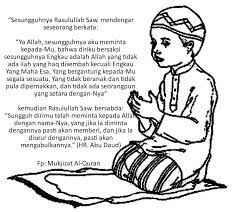 "Sesungguhnya Rasulullah Saw. mendengar
seseorang berkata:
"Ya Allah, sesungguhnya aku meminta
kepada-Mu, bahwa diriku bersaksi
sesungguhnya Engkau adalah Allah yang tidak
ada ilah yang haq disembah kecuali Engkau
Yang Maha Esa, Yang bergantung kepada-Mu
segala sesuatu, Yang tidak beranak dan tidak
pula dipernakkan, dan tidak ada seorangpun
yang setara dengan-Nya"
kemudian Rasulullah Saw. bersabda:
"Sungguh dirimu telah meminta kepada Allah
dengan nama-Nya, yang jika Ia diminta
dengannya pasti akan memberi, dan jika Ia
diseur dengannya, pasti akan
mengabulkannya." (HR. Abu Daud)
Fp: Mukjizat Al-Quran